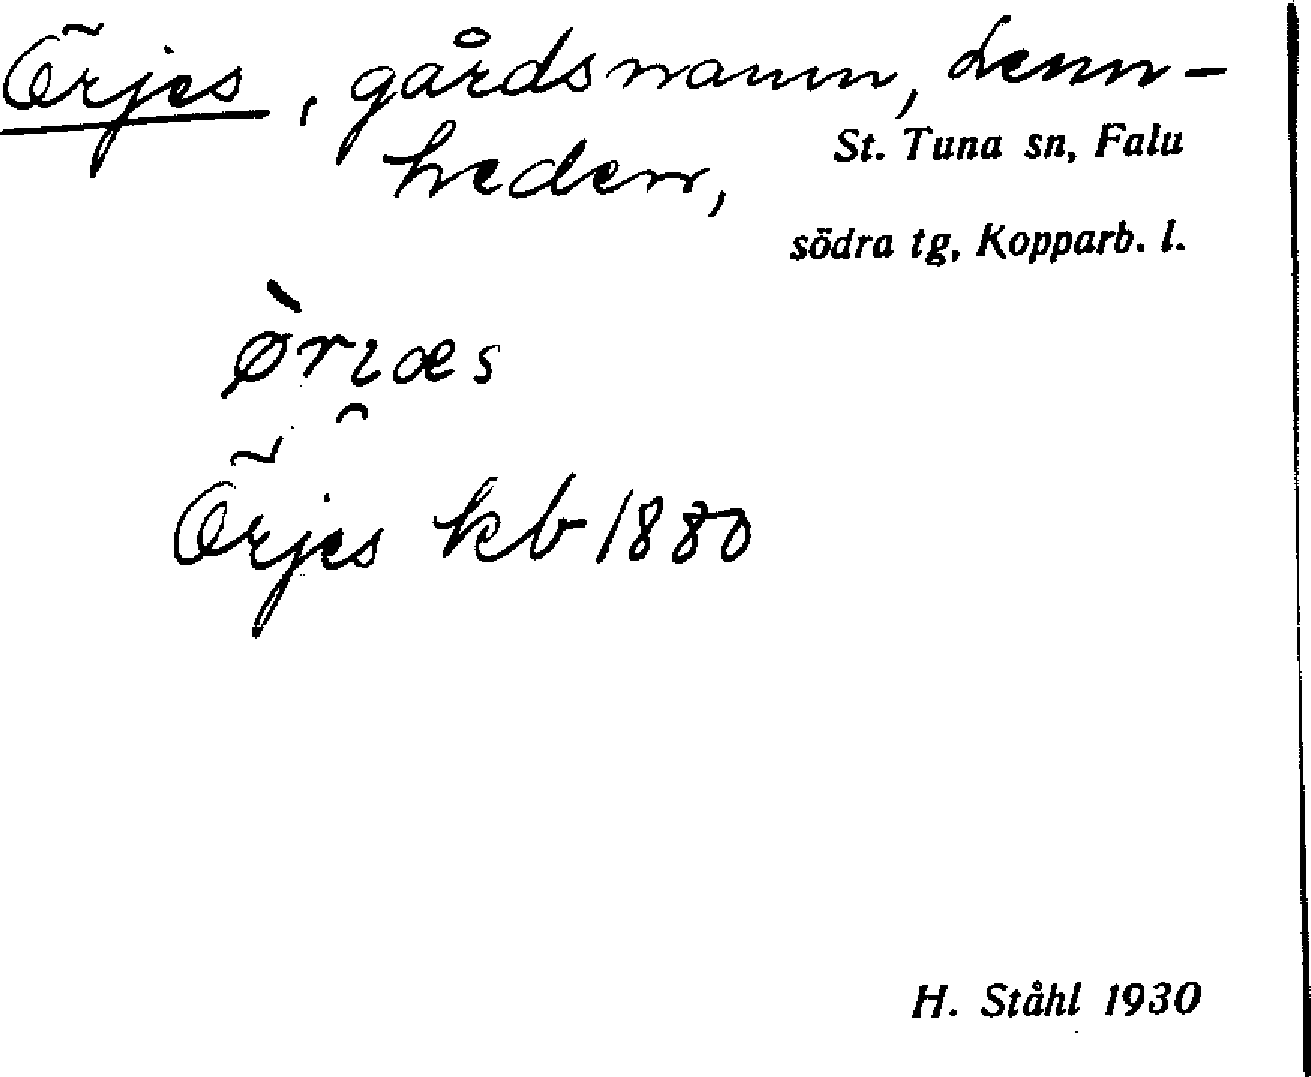 Örjes, gårdsnamn, Lenn-
heden,
St. Tuna sn, Falu
södra tg, Kopparb. l.
ø̀ri̯æs
Örjes kb 1880
H. Ståhl 1930